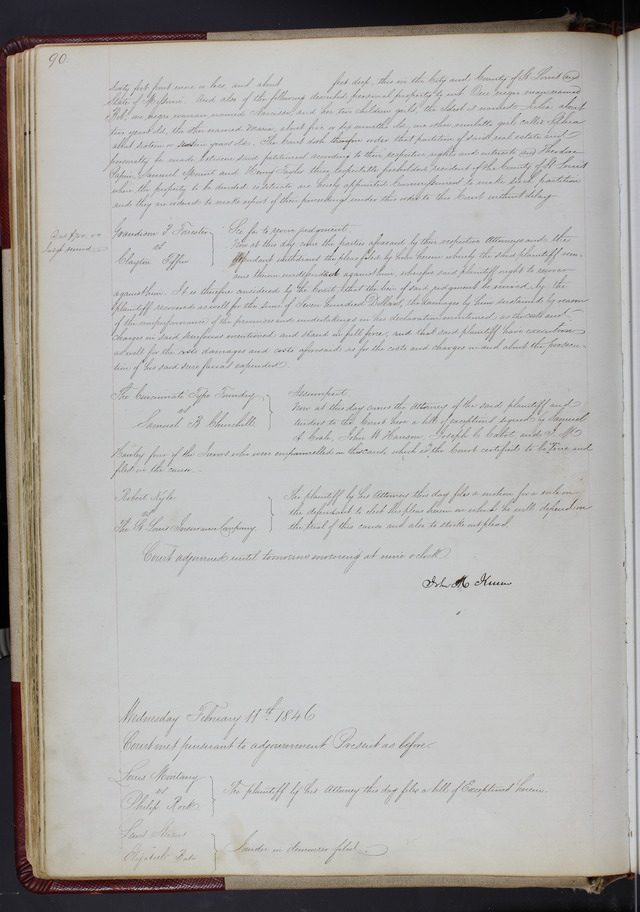 90.
sixty feet front more or less, and about feet deep, this in the City and County of St Louis and
State of Missouri. And also of the following described personal property to wit One negro man named
Bob, one negro woman named Narcissa, and her two children girls, the oldest is named Julia about
two years old, the other named Maria, about five or six months old, one other mulatto girl called
about sixteen or years old. The Court doth therefore order that partition of said real estate and
personalty be made between said petitioners according to their respective rights and interests and Theodore
Papin, Samuel and Henry Taylor three respectable freeholders resident of the County of St Louis
where the property to be divided is situate are hereby appointed Commissioners to make said partition
and they are ordered to make report of their proceedings under this order to this Court without delay
Grandison F Forister
vs
Clayton Tiffin
Sci. fa. to revive judgment
Now at this day come the parties aforesaid by their respective Attorneys and the
defendant withdraws the pleas filed by him herein whereby the said plaintiff remains
therein undefended against him, wherefore said plaintiff ought to recover
against him. It is therefore considered by the Court, that the lien of said judgment be revived, by the
plaintiff recovered as well for the sum of Seven hundred Dollars, the damages by him sustained by reason
of the nonperformance of the promises and undertakings in his declaration mentioned, as the costs and
charges in said scire facias mentioned and stand in full force, and that said plaintiff have execution
as well for the damages and costs aforesaid as for the costs and charges in and about the prosecu-
tion of his said scire facias expended.
The Cincinnati Type Foundry
vs
Samuel B Churchill
Assumpsit.
Now at this day comes the attorney of the said plaintiff and
tenders to the Court here a bill of exceptions signed by Samuel
A Coale, John W Hanson, Joseph C Cabot and M
Hanley four of the Jurors who were empannelled in this cause, which is the Court certifies to be True and
filed in the cause.
Robert
vs
The St Louis Insurance Company
The plaintiff by his Attorney this day files a motion for a rule on
the defendant to elect the pleas herein on which he will depend on
the trial of this cause and also to strike out pleas.
Court adjourned until tomorrow morning at nine o'clock
John M Krum
Wednesday February 11th 1846
Court met pursuant to adjournment Present as before
Louis Montany
vs
Philip Rock
The plaintiff by his Attorney this day files a bill of Exceptions herein
Elizabeth
Joinder in demurrer filed